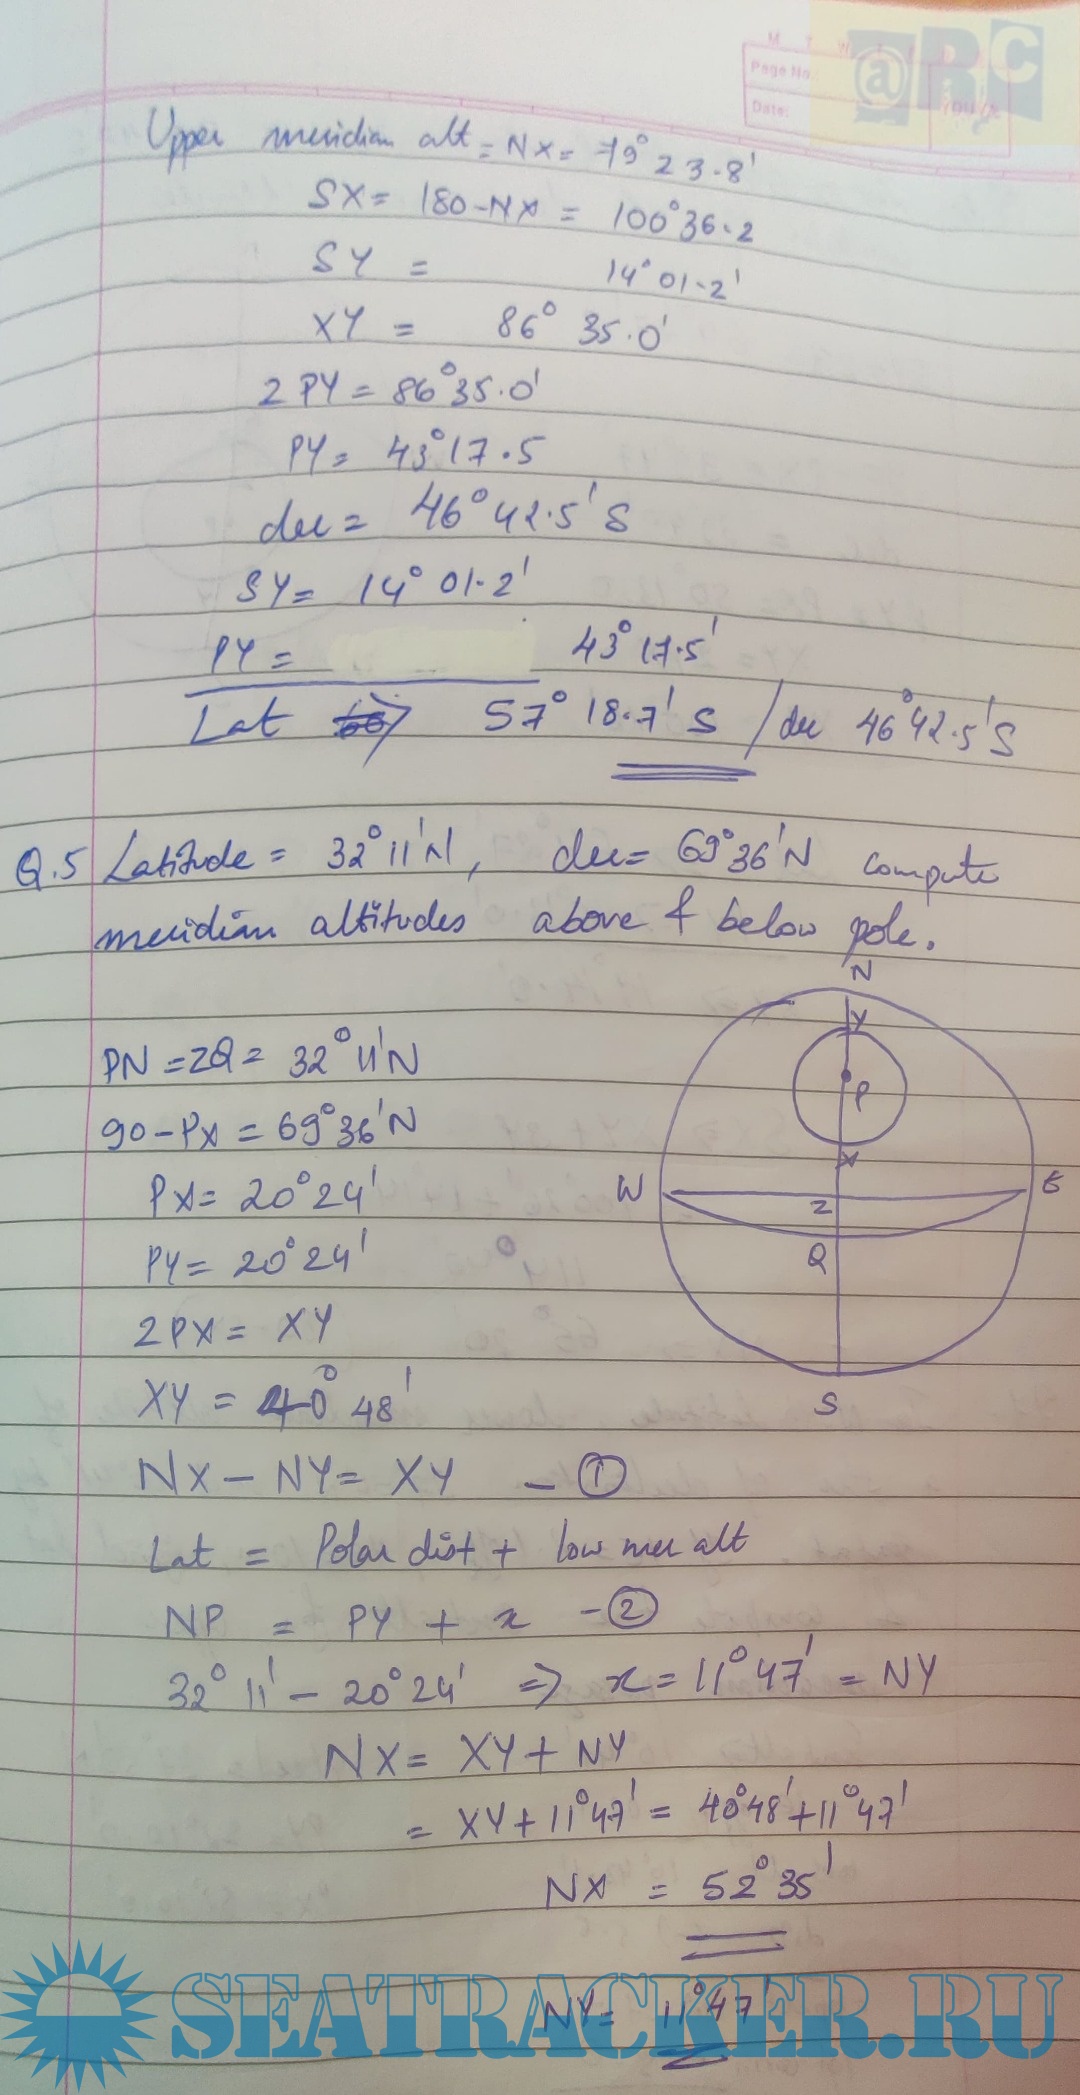 M T W
Page No.:
Date:
YOUVA
@RC
Upper meridian alt = NX = 79° 23.8'
SX = 180 - NX = 100° 36.2
SY = 14° 01.2'
XY = 86° 35.0'
2 PY = 86° 35.0'
PY = 43° 17.5
dec = 46° 42.5' S
SY = 14° 01.2'
PY = 43° 17.5'
Lat ⇒ 57° 18.7' S / dec 46° 42.5' S
Q.5 Latitude = 32° 11' N, dec = 69° 36' N compute
meridian altitudes above & below pole.
N
Y
P
X
W
E
Z
Q
S
PN = ZQ = 32° 11' N
90 - PX = 69° 36' N
PX = 20° 24'
PY = 20° 24'
2PX = XY
XY = 40° 48'
NX - NY = XY - ①
Lat = Polar dist + low mer alt
NP = PY + x - ②
32° 11' - 20° 24' ⇒ x = 11° 47' = NY
NX = XY + NY
= XY + 11° 47' = 40° 48' + 11° 47'
NX = 52° 35'
NY = 11° 47'
SEATRACKER.RU